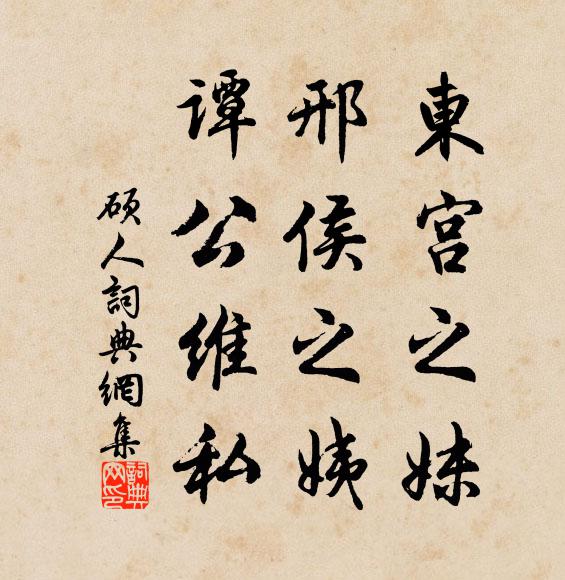 東宮之妹
邢侯之姨
譚公維私
碩人詞典網集
詞典网印